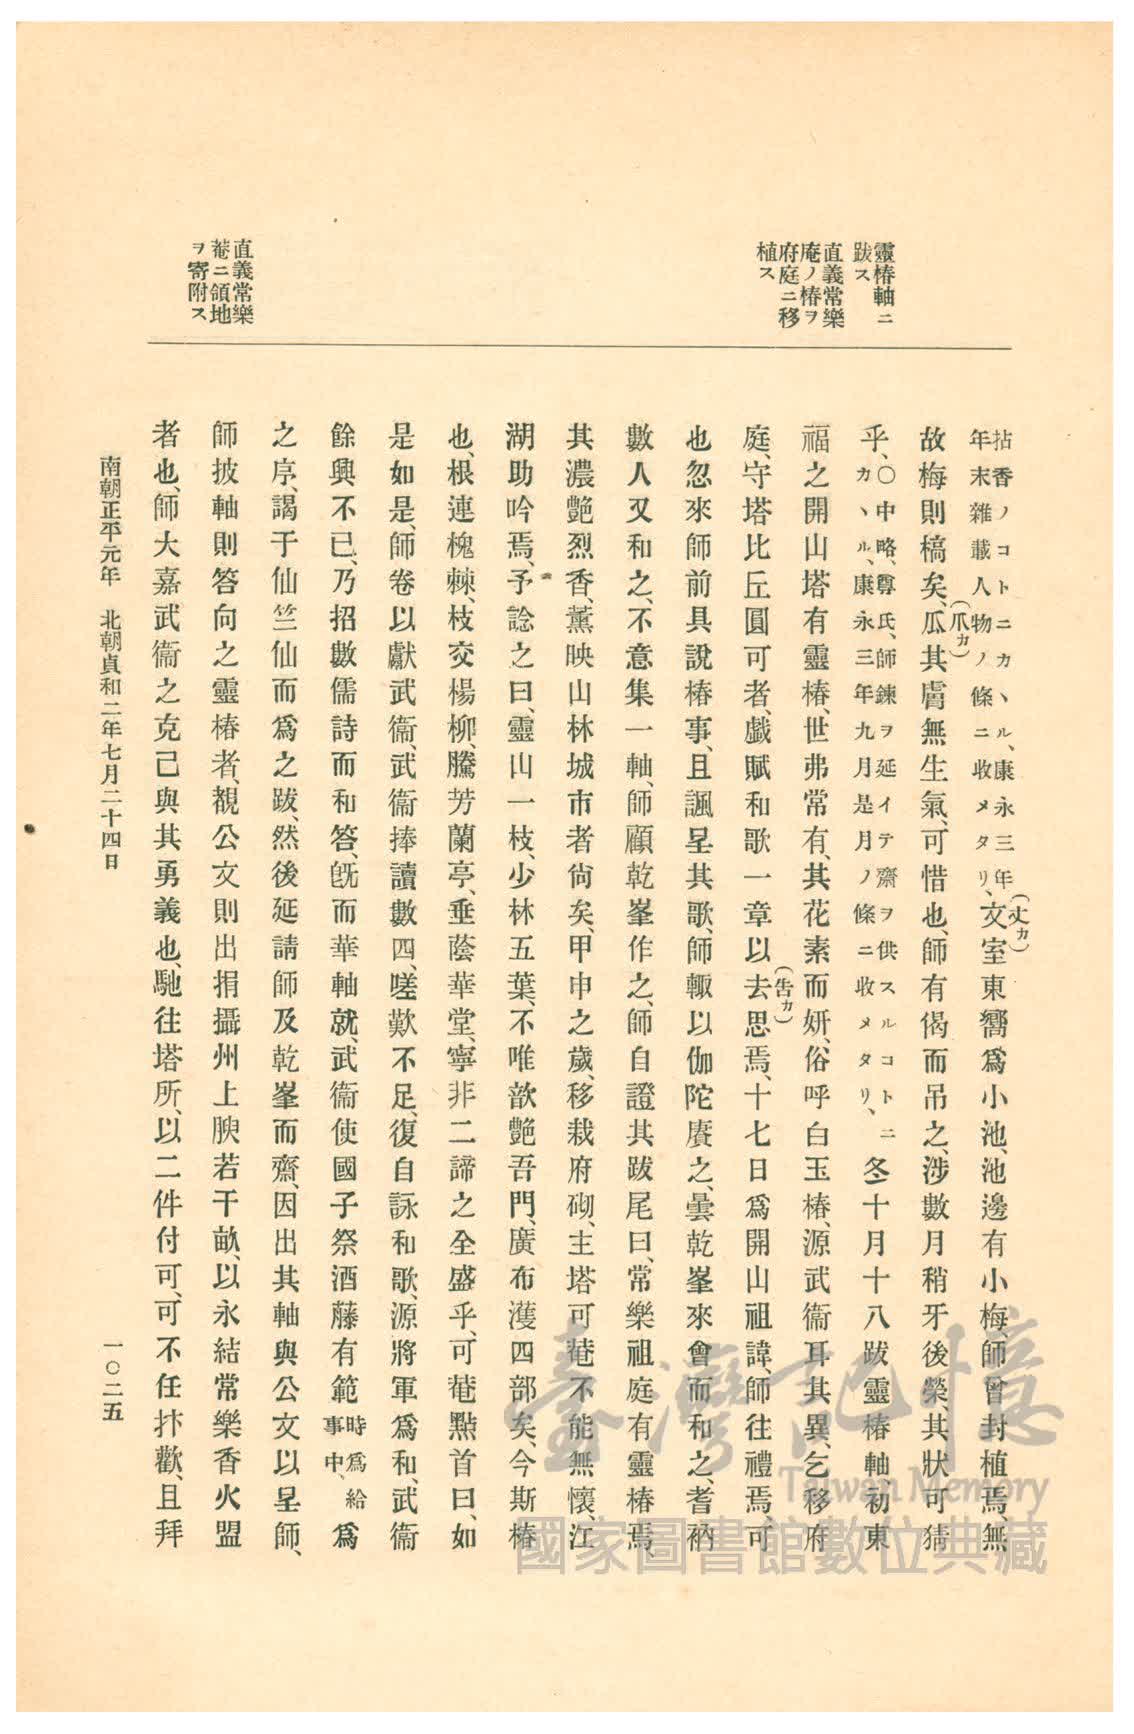 靈椿軸ニ
跋ス
直義常樂
庵ノ椿ヲ
府庭ニ移
植ス
直義常樂
菴ニ領地
ヲ寄附ス
拈香ノコトニカヽル、康永三年
年末雜載人物ノ條ニ收メタリ、文(丈カ)室東嚮爲小池、池邊有小梅、師曾封植焉、無
故梅則槁矣、瓜(爪カ)其膚無生氣、可惜也、師有偈而吊之、涉數月稍牙後榮、其狀可猜
乎、○中略、尊氏、師鍊ヲ延イテ齋ヲ供スルコトニ
カヽル、康永三年九月是月ノ條ニ收メタリ、冬十月十八跋靈椿軸、初東
福之開山塔有靈椿、世弗常有、其花素而妍、俗呼白玉椿、源武衞耳其異、乞移府
庭、守塔比丘圓可者、戲賦和歌一章以去(告カ)思焉、十七日爲開山祖諱、師往禮焉、可
也忽來師前具說椿事、且諷呈其歌、師輙以伽陀賡之、曇乾峯來會而和之、耆衲
數人又和之、不意集一軸、師顧乾峯作之、師自證其跋尾曰、常樂祖庭有靈椿焉、
其濃艷烈香、薰映山林城市者尙矣、甲申之歲、移栽府砌、主塔可菴不能無懷、江
湖助吟焉、予諗之曰、靈山一枝、少林五葉、不唯歆艷吾門、廣布濩四部矣、今斯椿
也、根連槐棘、枝交楊柳、騰芳蘭亭、垂蔭華堂、寧非二諦之全盛乎、可菴點首曰、如
是如是、師卷以獻武衞、武衞捧讀數四、嗟歎不足、復自詠和歌、源將軍爲和、武衞
餘興不已、乃招數儒詩而和答、旣而華軸就、武衞使國子祭酒藤有範時爲給
事中、爲
之序、謁于仙竺仙而爲之跋、然後延請師及乾峯而齋、因出其軸與公文以呈師、
師披軸則答向之靈椿者、覩公文則出捐攝州上腴若干畝、以永結常樂香火盟
者也、師大嘉武衞之克己與其勇義也、馳往塔所、以二件付可、可不任抃歡、且拜
南朝正平元年　北朝貞和二年七月二十四日
一〇二五
臺灣記憶
Taiwan Memory
國家圖書館數位典藏